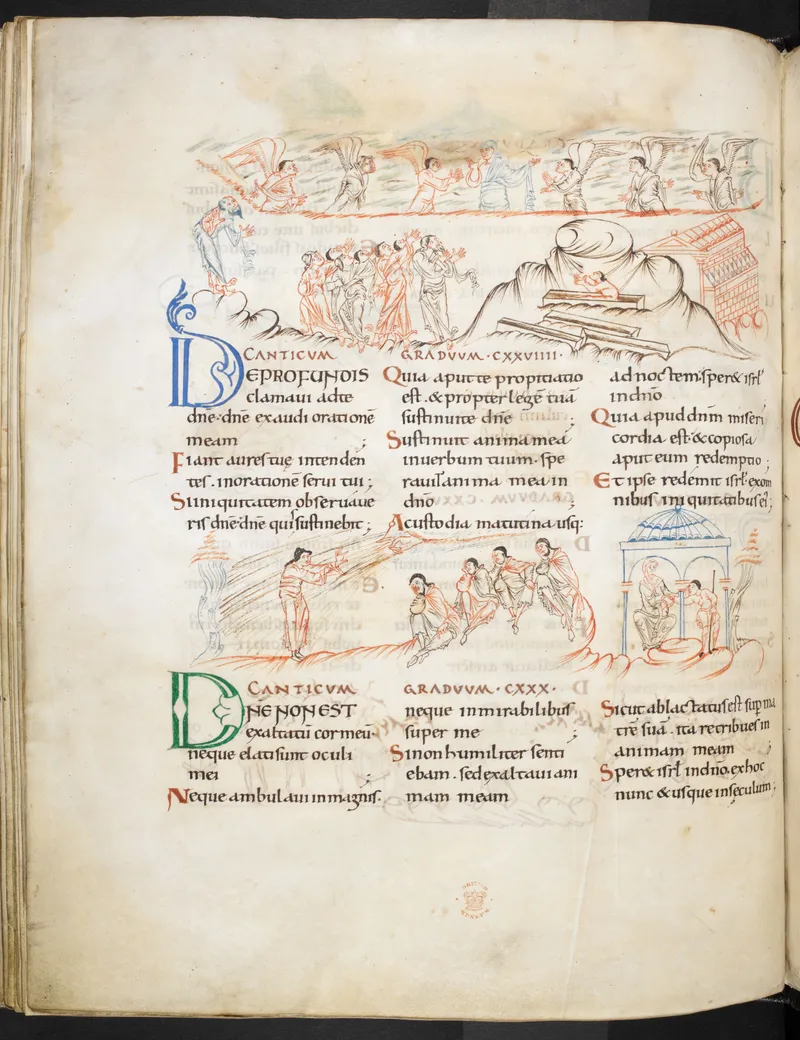 CANTICUM GRADUUM · CXXVIIII ·
DEPROFUNDIS
clamaui adte
dñe · dñe exaudi orationē
meam ;
Fiant aures tuę intenden
tes · inorationē serui tui ;
Siiniquitatem obseruaue
ris dñe · dñe quis sustinebit ;
Quia aput te propitiatio
est · & propter legē tuā
sustinui te dñe ;
Sustinuit anima mea
inuerbum tuum · spe
rauit anima mea in
dño ;
Acustodia matutina usq:
ad noctem · sper& isrł
indño
Quia apud dnm miseri
cordia est · & copiosa
aput eum redemptio ;
Et ipse redimit isrł · exom
nibus iniquitatibus ei ;
CANTICUM GRADUUM · CXXX ·
DÑE NON EST
exaltatū cor meū ·
neque elati sunt oculi
mei ;
Neque ambulaui in magnis ·
neque inmirabilibus
super me ;
Sinon humiliter senti
ebam · sed exaltaui ani
mam meam
Sicut ablactatus est sup ma
trē suā · ita retribues in
animam meam ;
Sper& isrł indño · exhoc
nunc & usque inseculum ;